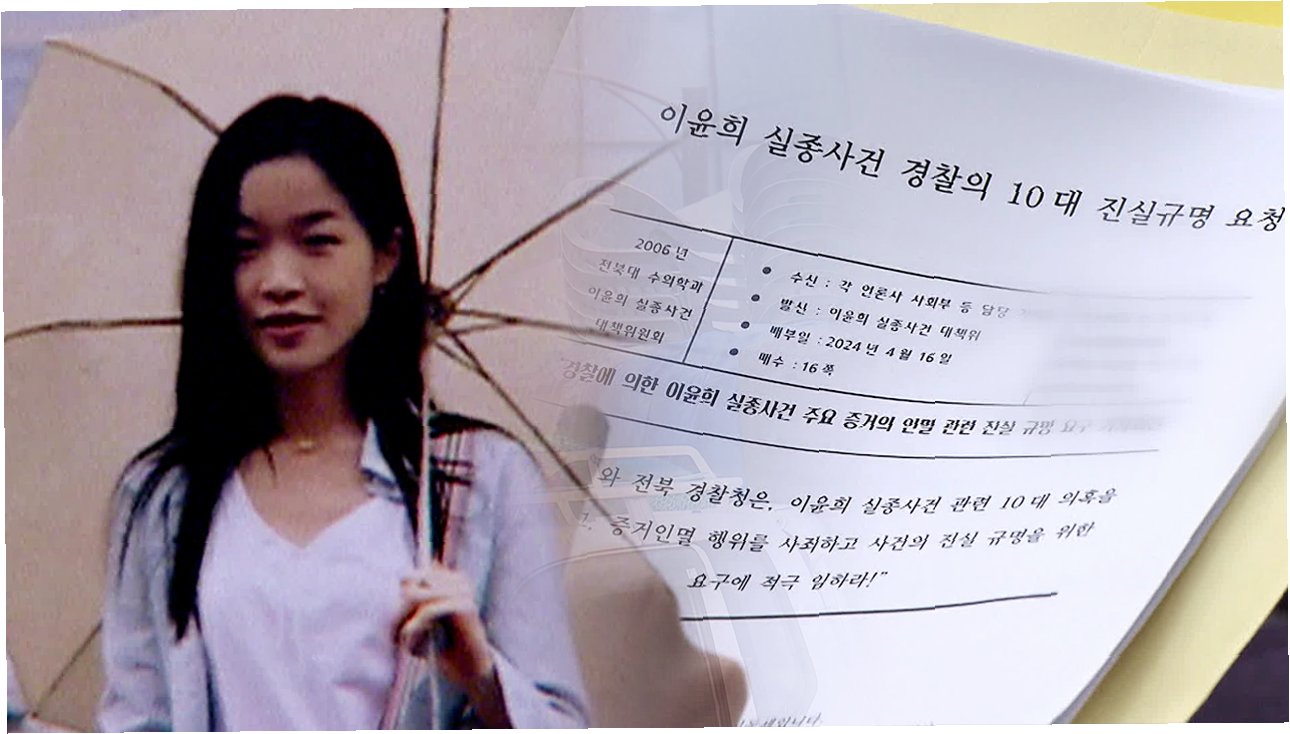 이윤희 실종사건 경찰의 10대 진실규명 요청
2006년
전북대 수의학과
이윤희 실종사건
대책위원회
● 수신 : 각 언론사 사회부 등 담당
● 발신 : 이윤희 실종사건 대책위
● 배부일 : 2024년 4월 16일
● 매수 : 16쪽
"경찰에 의한 이윤희 실종사건 주요 증거의 인멸 관련 진실 규명 요구
와 전북 경찰청은, 이윤희 실종사건 관련 10대 의혹을
증거인멸 행위를 사죄하고 사건의 진실 규명을 위한
요구에 적극 임하라!"